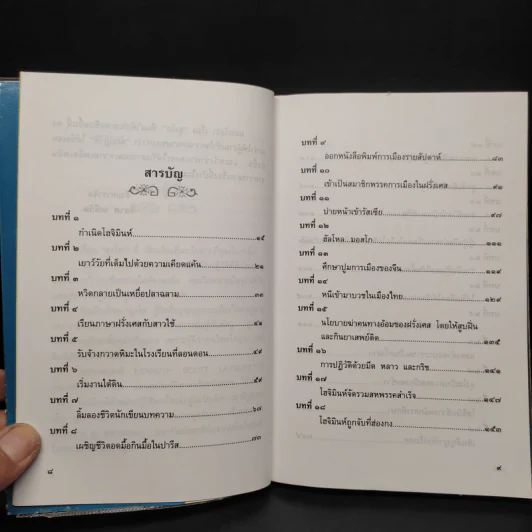 สารบัญ
บทที่ ๑
กำเนิดโฮจิมินห์.....................................๑๕
บทที่ ๒
เยาว์วัยที่เต็มไปด้วยความเคียดแค้น....................๒๑
บทที่ ๓
หวิดกลายเป็นเหยื่อปลาฉลาม.........................๓๓
บทที่ ๔
เรียนภาษาฝรั่งเศสกับสาวใช้..........................๔๑
บทที่ ๕
รับจ้างกวาดหิมะในโรงเรียนที่ลอนดอน..................๔๙
บทที่ ๖
เริ่มงานใต้ดิน.......................................๕๙
บทที่ ๗
ลิ้มลองชีวิตนักเขียนบทความ..........................๖๗
บทที่ ๘
เผชิญชีวิตอดมื้อกินมื้อในปารีส.........................๗๓
๘
บทที่ ๙
ออกหนังสือพิมพ์การเมืองรายสัปดาห์...................๘๓
บทที่ ๑๐
เข้าเป็นสมาชิกพรรคการเมืองในฝรั่งเศส................๙๑
บทที่ ๑๑
บ่ายหน้าเข้ารัสเซีย...................................๙๗
บทที่ ๑๒
ฮัลโหล...มอสโก....................................๑๑๑
บทที่ ๑๓
ศึกษาปูมการเมืองของจีน............................๑๑๙
บทที่ ๑๔
หนีเข้ามาบวชในเมืองไทย............................๑๒๙
บทที่ ๑๕
นโยบายฆ่าคนทางอ้อมของฝรั่งเศส โดยให้สูบฝิ่น
และกินยาเสพย์ติด..................................๑๓๕
บทที่ ๑๖
การปฏิวัติด้วยมีด หลาว และกริช.....................๑๔๑
บทที่ ๑๗
โฮจิมินห์จัดรวมสหพรรคสำเร็จ.......................๑๔๗
บทที่ ๑๘
โฮจิมินห์ถูกจับที่ฮ่องกง.............................๑๕๓
๙